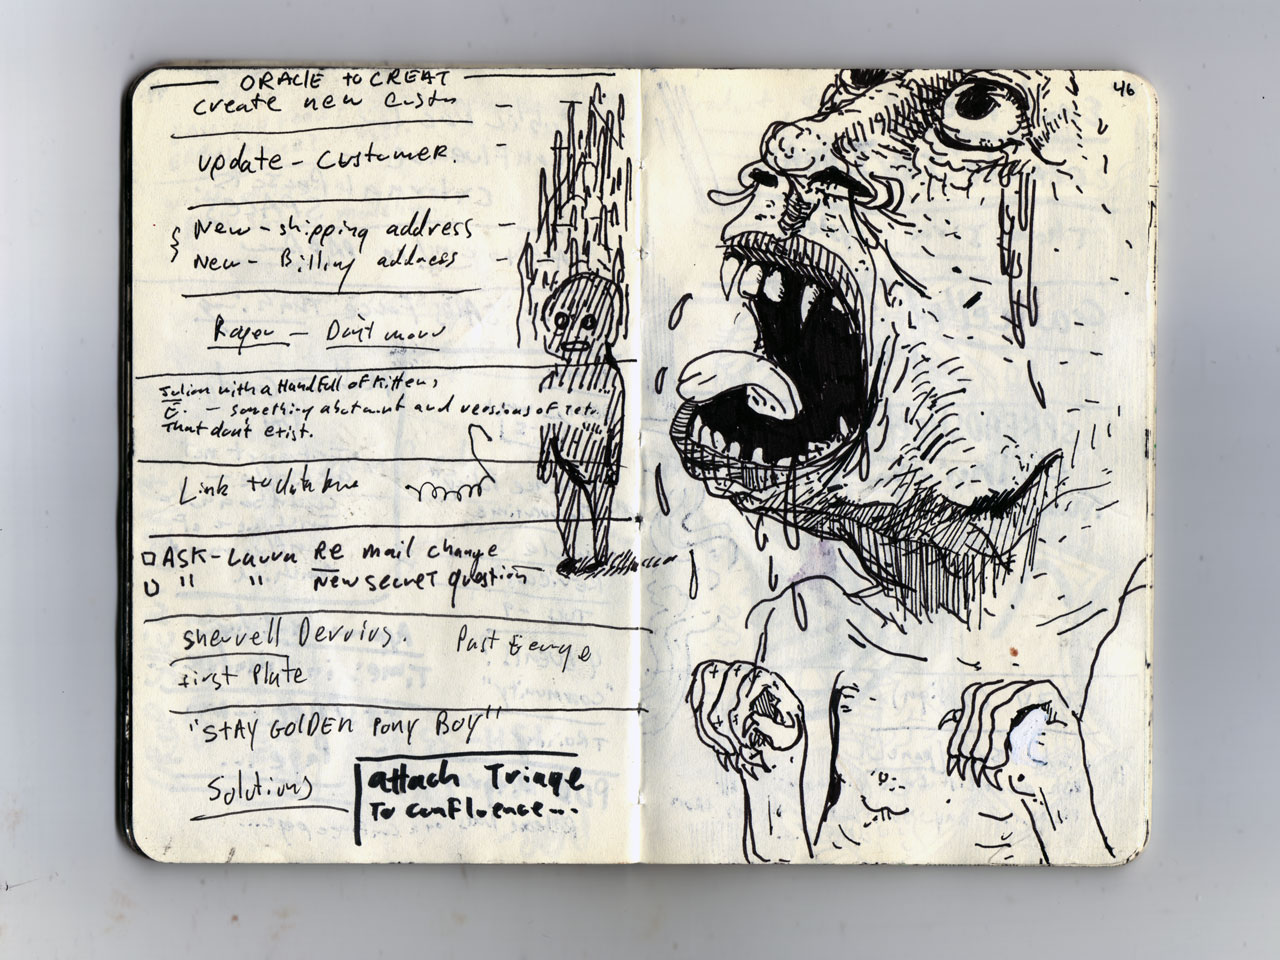 ORACLE to CREAT
create new
update - customer.
New - shipping address
New - Billing address
Roger - Don't
with a Handfull of Kittens
E. - something about and versions of
That don't exist.
Link to
ASK - Laura Re mail change
" " New secret question
Past
First Plate
"STAY GOLDEN PONY BOY"
Solutions
attach Triage
To confluence...
46